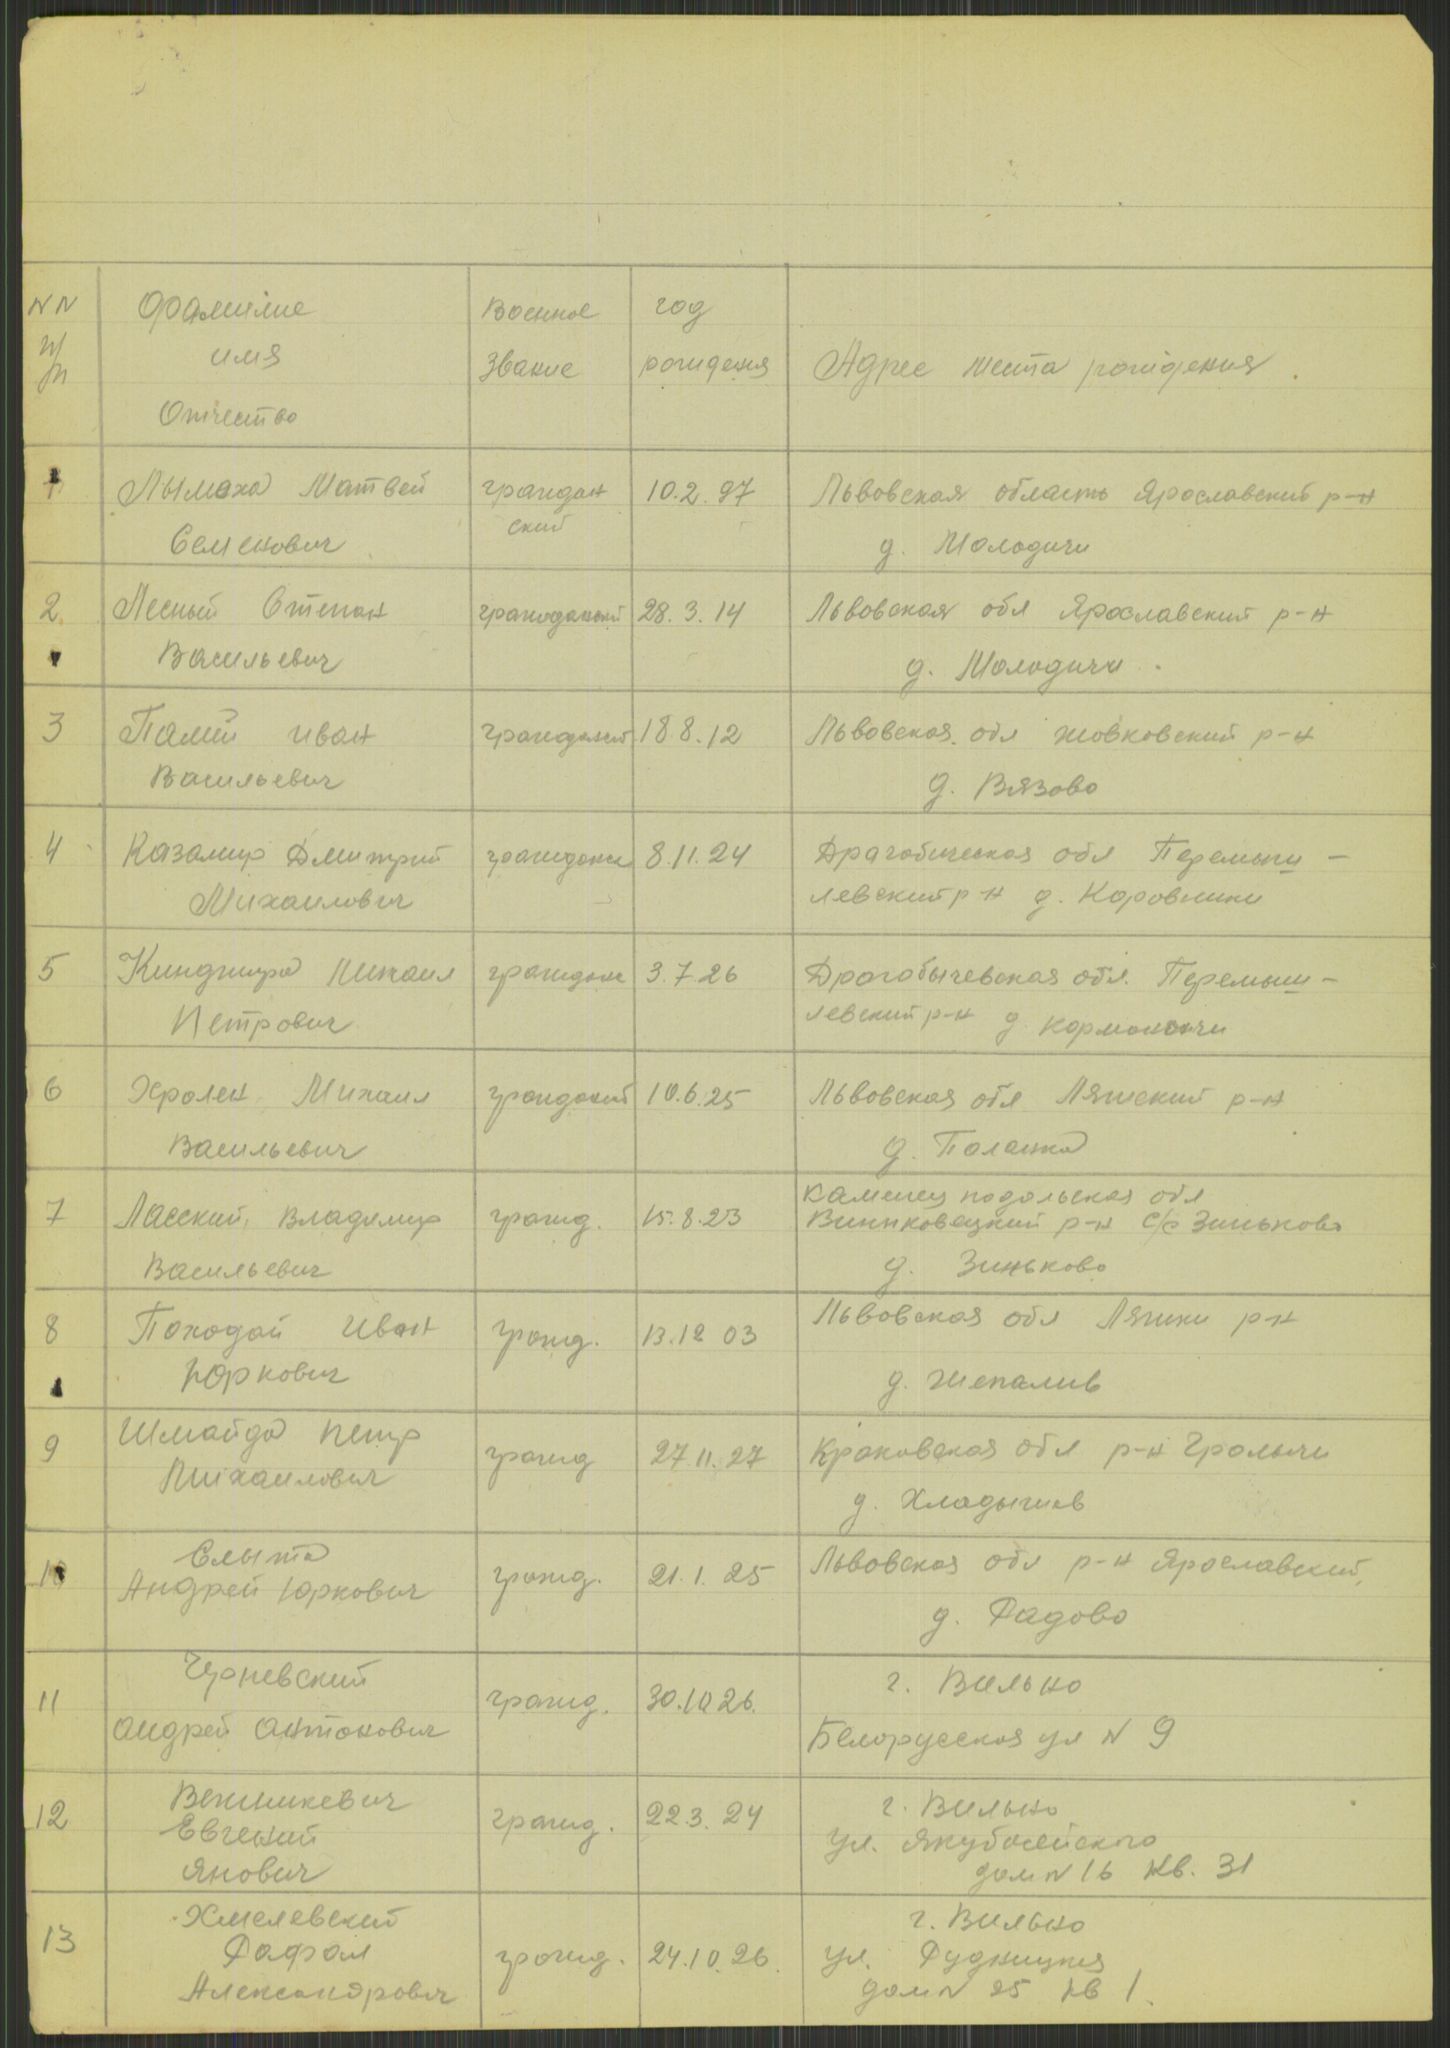 NN Фамилие Военное год
п/п имя Звание рождения Адрес места рождения
Отчество
1 Лымаха Матвей граждан 10.2.97 Львовская область Ярославский р-н
ский
Семенович д. Молодичи
2 Лесный Степан гражданский 28.3.14 Львовская обл Ярославский р-н
Васильевич д. Молодичи
3 Палий Иван гражданский 18.8.12 Львовская обл Жовковский р-н
Васильевич д. Вязово
4 Казамир Дмитрий граждански 8.11.24 Драгобическая обл Перемыш-
Михаилович левский р-н д. Коровники
5 Кинджира Михаил граждански 3.7.26 Драгобычевская обл. Перемыш-
Петрович левский р-н д.
6 Хролен Михаил гражданский 10.6.25 Львовская обл Ляшский р-н
Васильевич д.
7 Ласский Владимир гражд. 15.8.23 Каменец подольская обл
Виньковецкий р-н с/с Зиньково
Васильевич д. Зиньково
8 Походай Иван гражд. 13.12 03 Львовская обл Ляшки р-н
Юркович д.
9 Шмайда Петр гражд 27.11.27 Краковская обл р-н
Михаилович д.
10 Слыта гражд. 21.1.25 Львовская обл р-н Ярославский,
Андрей Юркович д. Радово
11 гражд. 30.10 26. г. Вильно
Андрей Антонович Белорусская ул N 9
12 Венцкевич гражд. 22.3.24 г. Вильно
Евгений ул.
Янович дом N 16 кв. 31
13 Хмелевский гражд. 24.10.26. г. Вильно
Рафал ул. Рудницкая
Александрович дом N 25 кв 1.